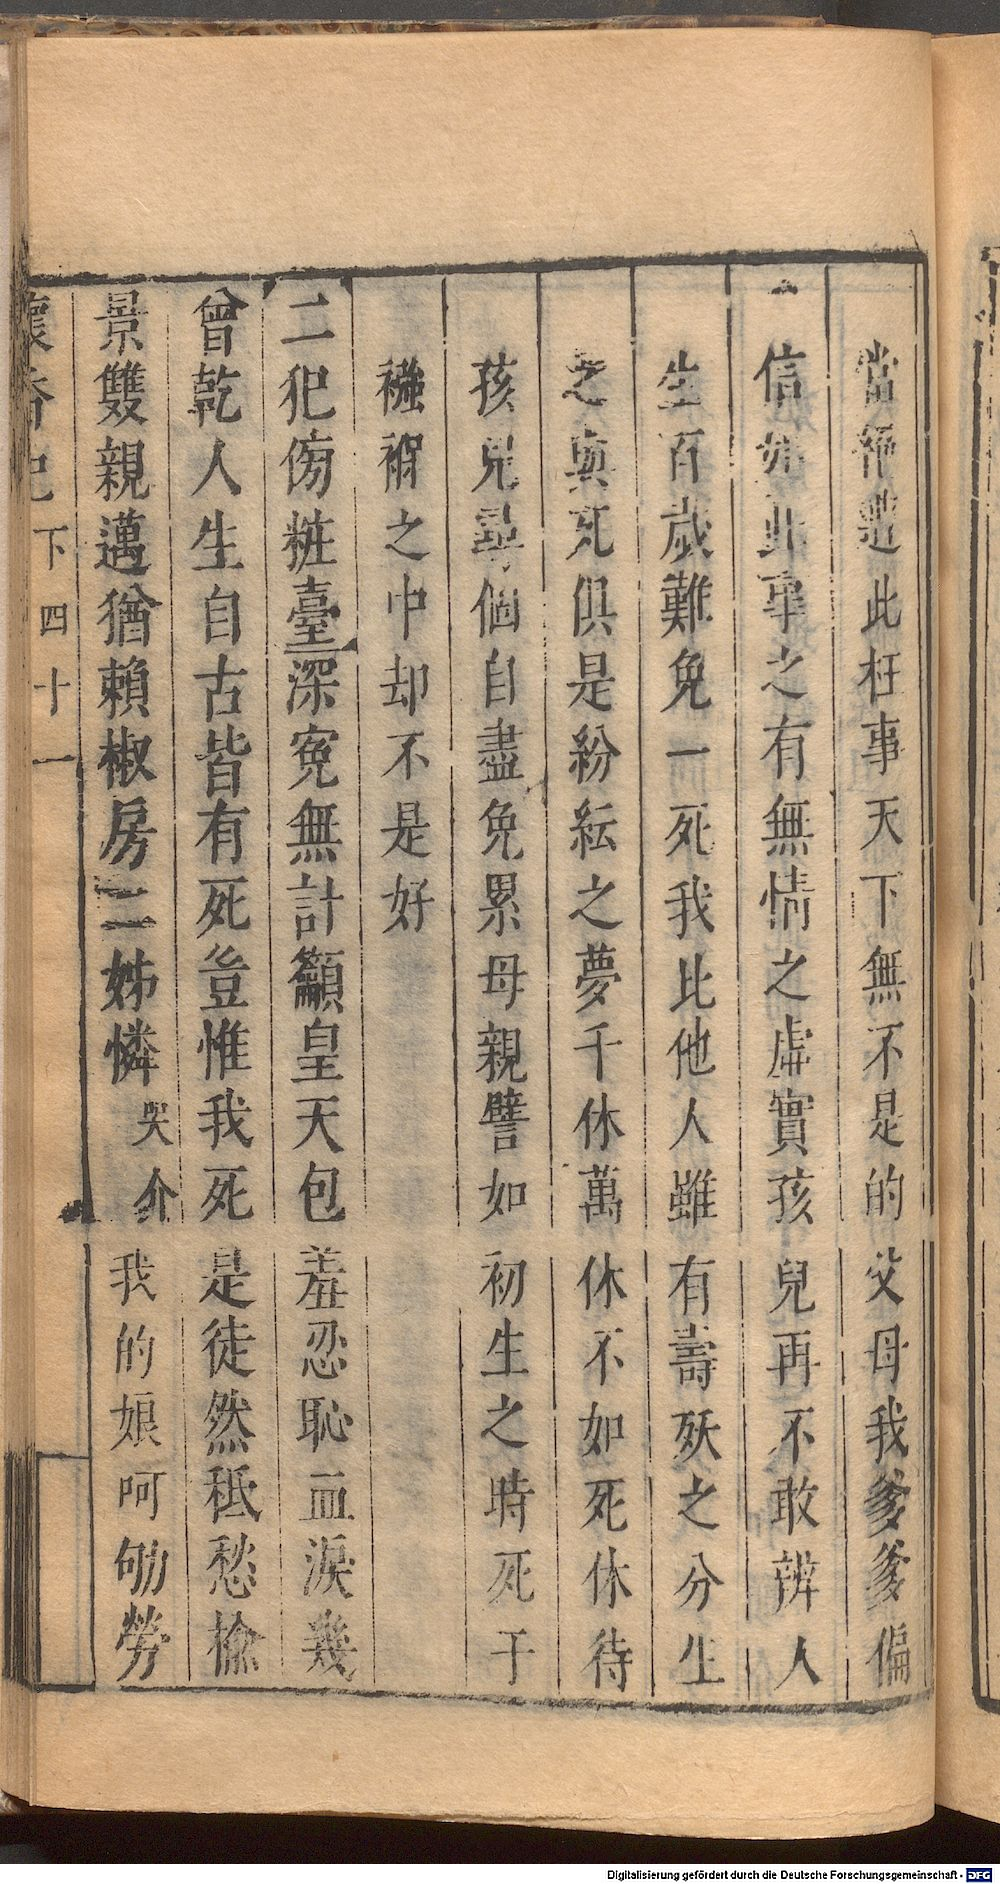 當罹這此枉事天下無不是的父母我爹爹偏
信妳此事之有無情之虛實孩兒再不敢辨人
生百歲難免一死我比他人雖有壽殀之分生
之與死俱是紛紜之夢千休萬休不如死休待
孩兒尋個自盡免累母親譬如初生之時死于
襁褓之中却不是好
二犯傍粧臺深寃無計籲皇天包羞忍恥血淚幾
曾乾人生自古皆有死豈惟我死是徒然秪愁榆
景雙親邁猶賴椒房二姊憐哭介我的娘呵劬勞
懷香記下四十一
Digitalisierung gefördert durch die Deutsche Forschungsgemeinschaft - DFG